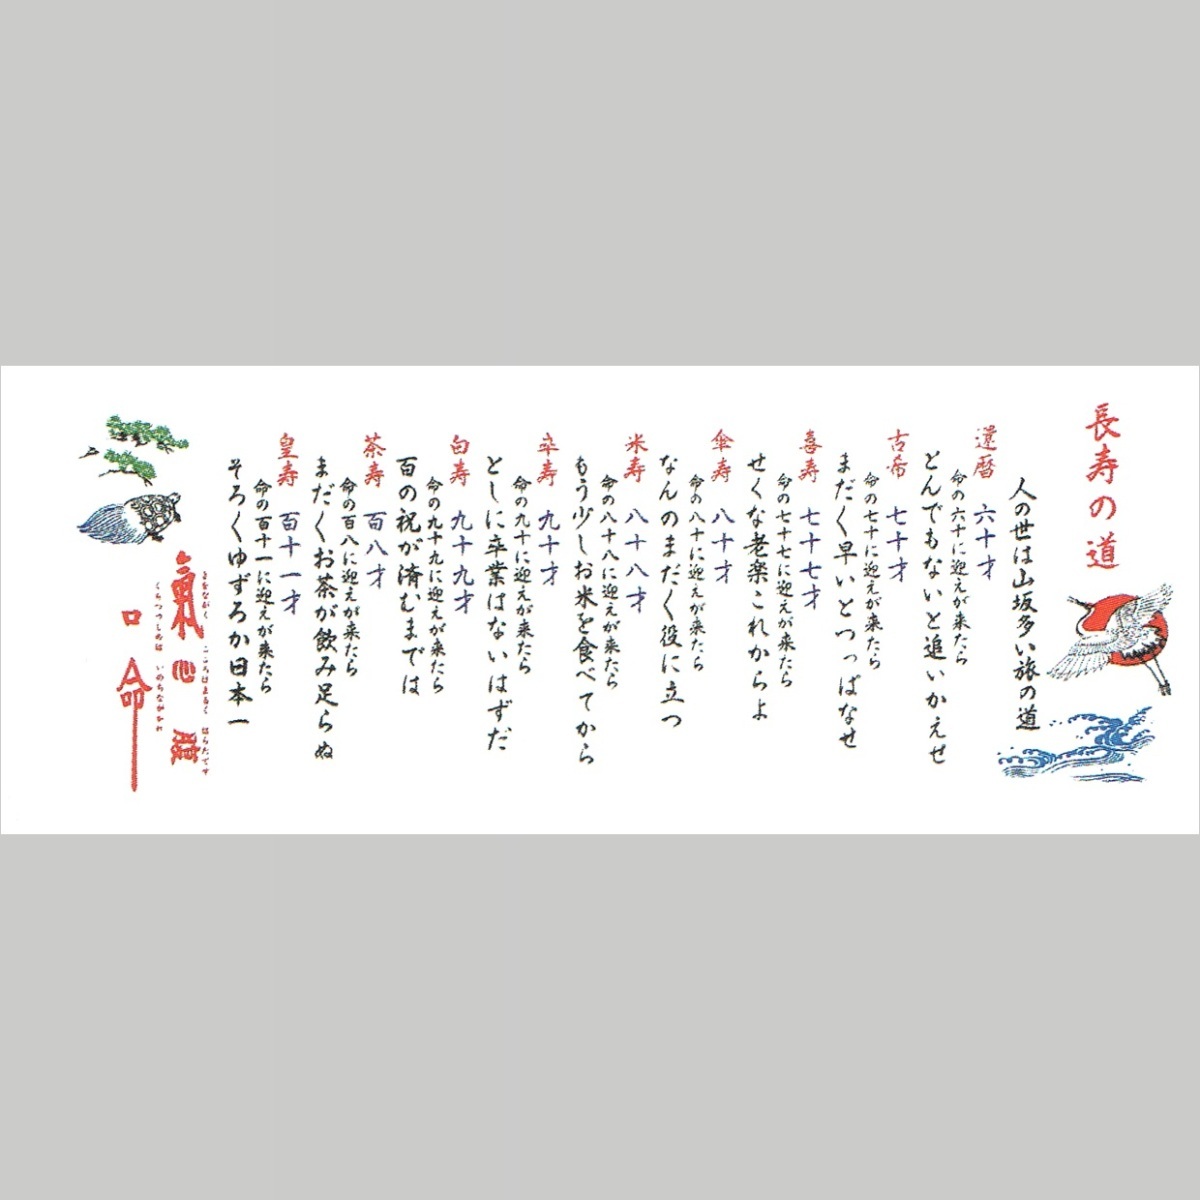 長寿の道
人の世は山坂多い旅の道
還暦 六十才
命の六十に迎えが来たら
とんでもないと追いかえせ
古希 七十才
命の七十に迎えが来たら
まだ〱早いとつっぱなせ
喜寿 七十七才
命の七十七に迎えが来たら
せくな老楽これからよ
傘寿 八十才
命の八十に迎えが来たら
なんのまだ〱役に立つ
米寿 八十八才
命の八十八に迎えが来たら
もう少しお米を食べてから
卒寿 九十才
命の九十に迎えが来たら
としに卒業はないはずだ
白寿 九十九才
命の九十九に迎えが来たら
百の祝が済むまでは
茶寿 百八才
命の百八に迎えが来たら
まだ〱お茶が飲み足らぬ
皇寿 百十一才
命の百十一に迎えが来たら
そろ〱ゆずろか日本一
きをながく こころはまるく はらたてず
氣 心 腹
くちつつしめば いのちながかれ
口 命